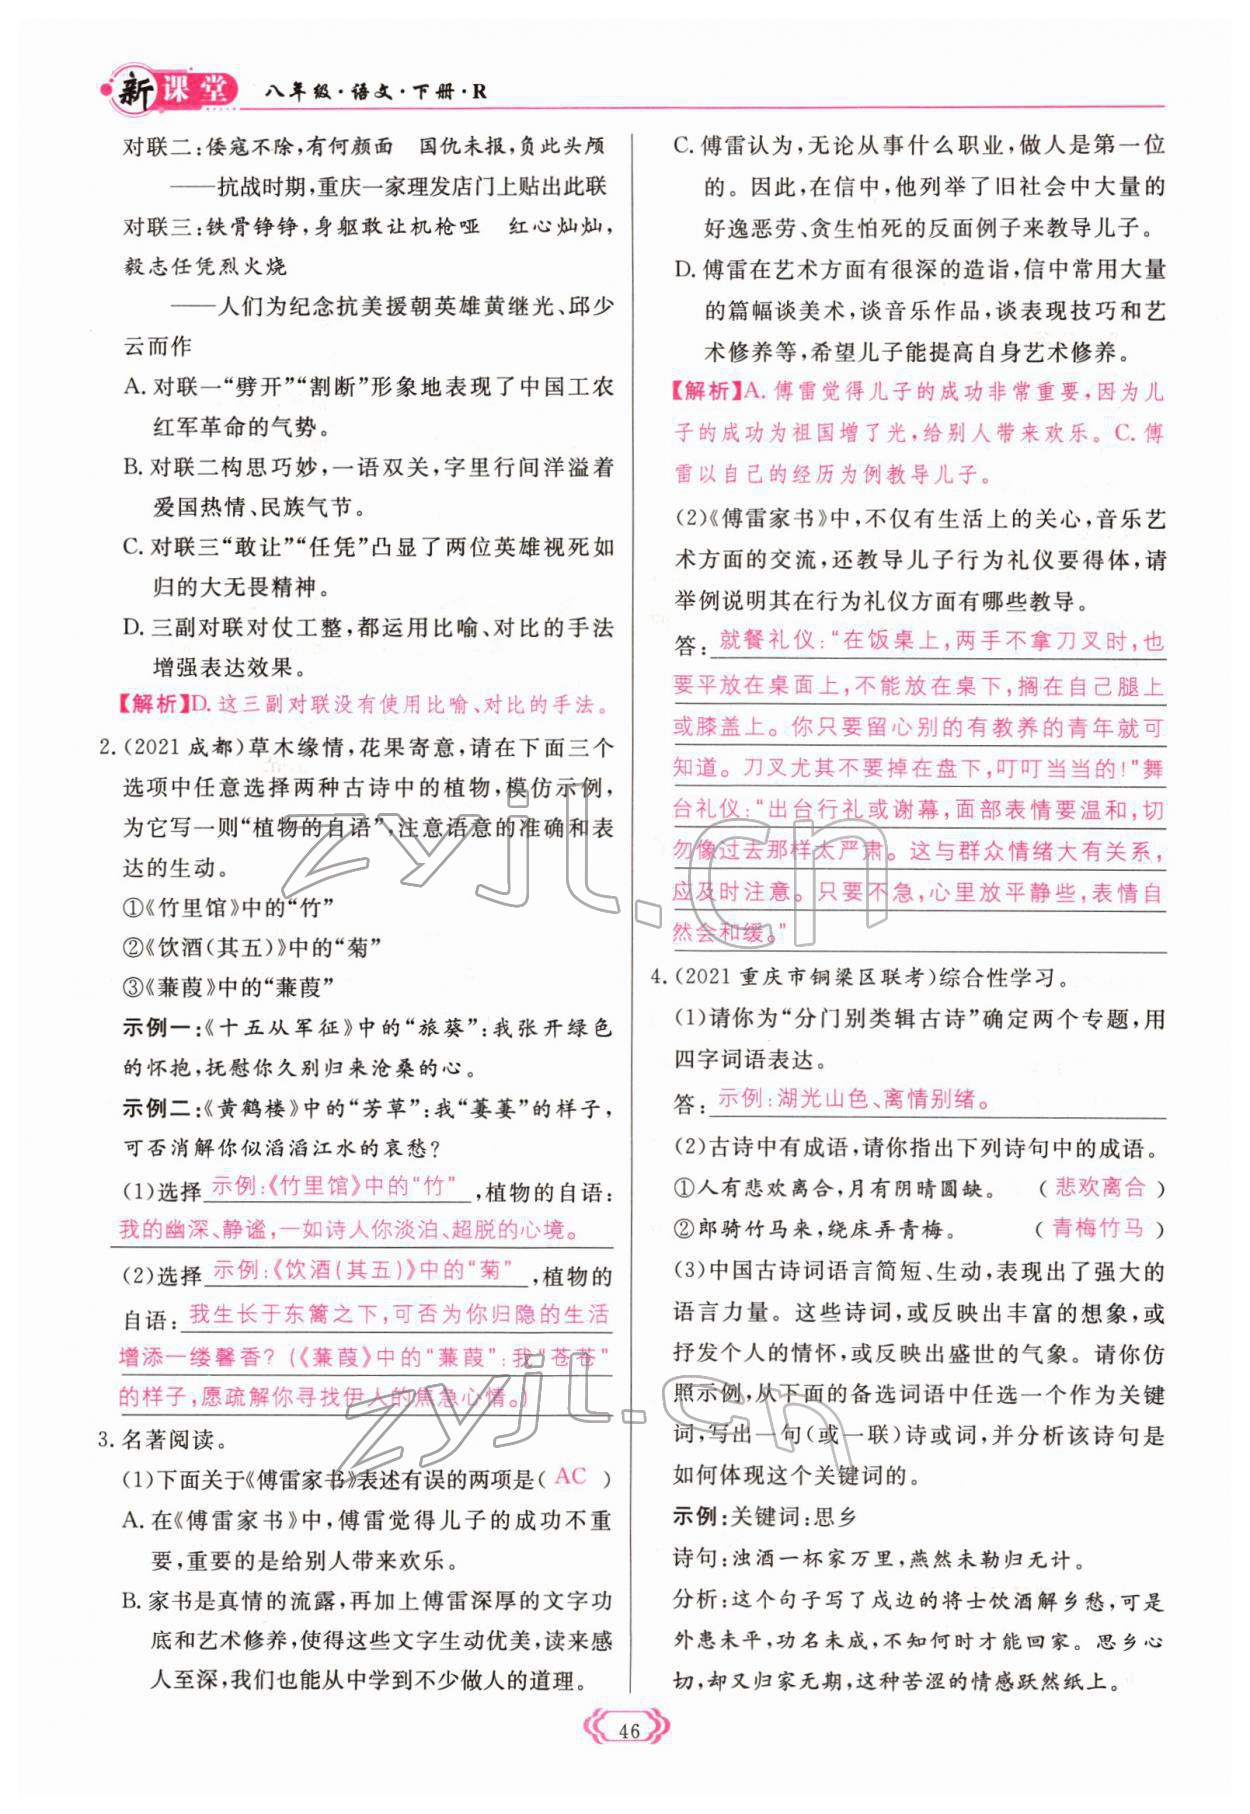 新课堂 八年级·语文·下册·R
对联二:倭寇不除,有何颜面　国仇未报,负此头颅
——抗战时期,重庆一家理发店门上贴出此联
对联三:铁骨铮铮,身躯敢让机枪哑　红心灿灿,
毅志任凭烈火烧
——人们为纪念抗美援朝英雄黄继光、邱少
云而作
A. 对联一“劈开”“割断”形象地表现了中国工农
红军革命的气势。
B. 对联二构思巧妙,一语双关,字里行间洋溢着
爱国热情、民族气节。
C. 对联三“敢让”“任凭”凸显了两位英雄视死如
归的大无畏精神。
D. 三副对联对仗工整,都运用比喻、对比的手法
增强表达效果。
【解析】D. 这三副对联没有使用比喻、对比的手法。
2. (2021 成都)草木缘情,花果寄意,请在下面三个
选项中任意选择两种古诗中的植物,模仿示例,
为它写一则“植物的自语”,注意语意的准确和表
达的生动。
①《竹里馆》中的“竹”
②《饮酒(其五)》中的“菊”
③《蒹葭》中的“蒹葭”
示例一:《十五从军征》中的“旅葵”:我张开绿色
的怀抱,抚慰你久别归来沧桑的心。
示例二:《黄鹤楼》中的“芳草”:我“萋萋”的样子,
可否消解你似滔滔江水的哀愁?
(1)选择 示例:《竹里馆》中的“竹” ,植物的自语:
我的幽深、静谧,一如诗人你淡泊、超脱的心境。
(2)选择 示例:《饮酒(其五)》中的“菊” ,植物的
自语: 我生长于东篱之下,可否为你归隐的生活
增添一缕馨香? (《蒹葭》中的“蒹葭”:我“苍苍”
的样子,愿疏解你寻找伊人的焦急心情。)
3. 名著阅读。
(1)下面关于《傅雷家书》表述有误的两项是( AC )
A. 在《傅雷家书》中,傅雷觉得儿子的成功不重
要,重要的是给别人带来欢乐。
B. 家书是真情的流露,再加上傅雷深厚的文字功
底和艺术修养,使得这些文字生动优美,读来感
人至深,我们也能从中学到不少做人的道理。
C. 傅雷认为,无论从事什么职业,做人是第一位
的。因此,在信中,他列举了旧社会中大量的
好逸恶劳、贪生怕死的反面例子来教导儿子。
D. 傅雷在艺术方面有很深的造诣,信中常用大量
的篇幅谈美术,谈音乐作品,谈表现技巧和艺
术修养等,希望儿子能提高自身艺术修养。
【解析】A. 傅雷觉得儿子的成功非常重要,因为儿
子的成功为祖国增了光,给别人带来欢乐。C. 傅
雷以自己的经历为例教导儿子。
(2)《傅雷家书》中,不仅有生活上的关心,音乐艺
术方面的交流,还教导儿子行为礼仪要得体,请
举例说明其在行为礼仪方面有哪些教导。
答: 就餐礼仪:“在饭桌上,两手不拿刀叉时,也
要平放在桌面上,不能放在桌下,搁在自己腿上
或膝盖上。你只要留心别的有教养的青年就可
知道。刀叉尤其不要掉在盘下,叮叮当当的!”舞
台礼仪:“出台行礼或谢幕,面部表情要温和,切
勿像过去那样太严肃。这与群众情绪大有关系,
应及时注意。只要不急,心里放平静些,表情自
然会和缓。”
4. (2021 重庆市铜梁区联考)综合性学习。
(1)请你为“分门别类辑古诗”确定两个专题,用
四字词语表达。
答: 示例:湖光山色、离情别绪。
(2)古诗中有成语,请你指出下列诗句中的成语。
①人有悲欢离合,月有阴晴圆缺。 ( 悲欢离合 )
②郎骑竹马来,绕床弄青梅。 ( 青梅竹马 )
(3)中国古诗词语言简短、生动,表现出了强大的
语言力量。这些诗词,或反映出丰富的想象,或
抒发个人的情怀,或反映出盛世的气象。请你仿
照示例,从下面的备选词语中任选一个作为关键
词,写出一句(或一联)诗或词,并分析该诗句是
如何体现这个关键词的。
示例:关键词:思乡
诗句:浊酒一杯家万里,燕然未勒归无计。
分析:这个句子写了戍边的将士饮酒解乡愁,可是
外患未平,功名未成,不知何时才能回家。思乡心
切,却又归家无期,这种苦涩的情感跃然纸上。
46
zyjl.cn
zyjl.cn